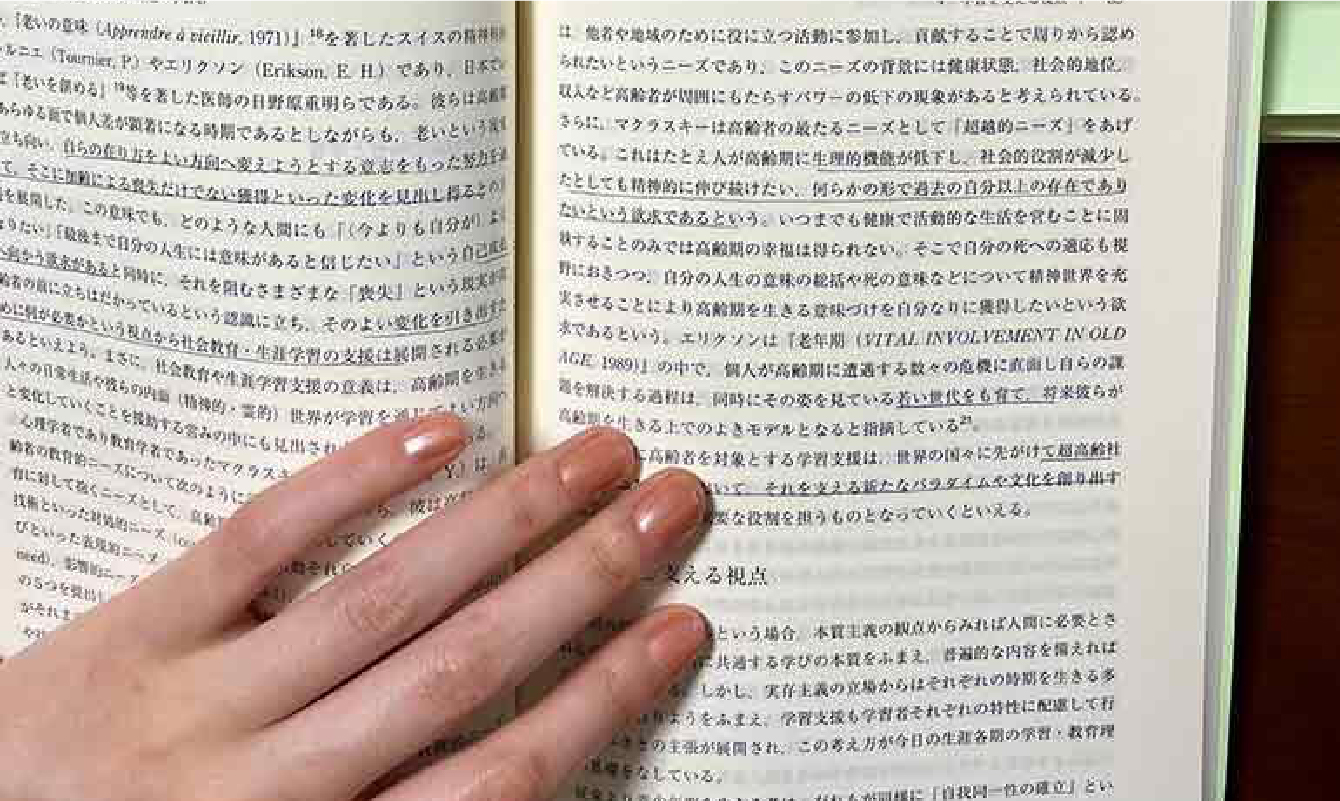 『老いの意味（Apprendre à vieillir, 1971）』¹⁸を著したスイスの精神
ルニエ（Tournier, P.）やエリクソン（Erikson, E. H.）であり、日本で
『老いを創める』¹⁹等を著した医師の日野原重明らである。彼らは高齢
あらゆる面で個人差が顕著になる時期であるとしながらも、老いという
立ち向い、自らの在り方をよい方向へ変えようとする意志をもった努力を
て、そこに加齢による喪失だけでない獲得といった変化を見出し得るとの
を展開した。この意味でも、どのような人間にも「（今よりも自分が）よ
なりたい」「最後まで自分の人生には意味があると信じたい」という自己
へ向かう欲求があると同時に、それを阻むさまざまな「喪失」という現実が
齢者の前に立ちはだかっているという認識に立ち、そのよい変化を引き出す
めに何が必要かという視点から社会教育・生涯学習の支援は展開される必要
あるといえよう。まさに、社会教育や生涯学習支援の意義は、高齢期を生きる
人々の日常生活や彼らの内面（精神的・霊的）世界が学習を通じてよい方向へ
と変化していくことを援助する営みの中にも見出され
心理学者であり教育学者であったマクラスキ
齢者の教育的ニーズについて次のように
育に対して抱くニーズとして、高齢
技術といった対処的ニーズ
びといった表現的ニーズ
need）、影響的ニーズ
の5つを提出し
がそれま
は、他者や地域のために役に立つ活動に参加し、貢献することで周りから認め
られたいというニーズであり、このニーズの背景には健康状態、社会的地位、
収入など高齢者が周囲にもたらすパワーの低下の現象があると考えられている。
さらに、マクラスキーは高齢者の最たるニーズとして「超越的ニーズ」をあげ
ている。これはたとえ人が高齢期に生理的機能が低下し、社会的役割が減少し
たとしても精神的に伸び続けたい、何らかの形で過去の自分以上の存在であり
たいという欲求であるという。いつまでも健康で活動的な生活を営むことに固
執することのみでは高齢期の幸福は得られない。そこで自分の死への適応も視
野におきつつ、自分の人生の意味の総括や死の意味などについて精神世界を充
実させることにより高齢期を生きる意味づけを自分なりに獲得したいという欲
求であるという。エリクソンは『老年期（VITAL INVOLVEMENT IN OLD
AGE, 1989）』の中で、個人が高齢期に遭遇する数々の危機に直面し自らの課
題を解決する過程は、同時にその姿を見ている若い世代をも育て、将来彼らが
高齢期を生きる上でのよきモデルとなると指摘している²¹。
高齢者を対象とする学習支援は、世界の国々に先がけて超高齢社
いて、それを支える新たなパラダイムや文化を創り出す
要な役割を担うものとなっていくといえる。
支える視点
という場合、本質主義の観点からみれば人間に必要とさ
に共通する学びの本質をふまえ、普遍的な内容を備えれば
る。しかし、実存主義の立場からはそれぞれの時期を生きる多
ようをふまえ、学習支援も学習者それぞれの特性に配慮して行
との主張が展開され、この考え方が今日の生涯各期の学習・教育理
基礎をなしている。
「自我同一性の確立」とい